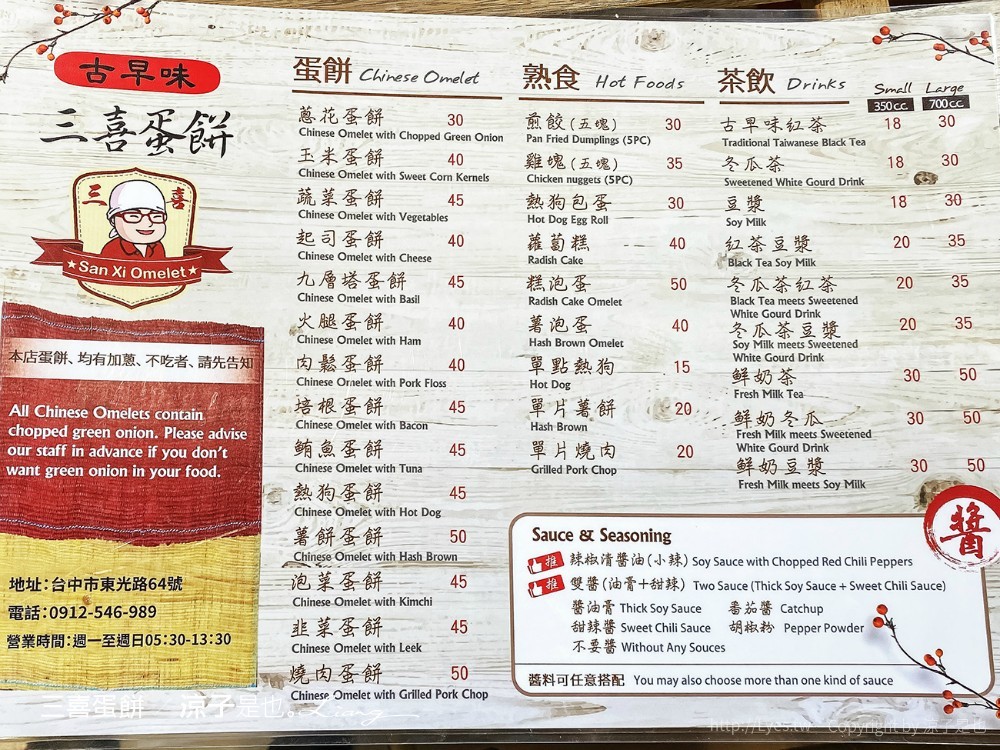 古早味
三喜蛋餅
三 喜
San Xi Omelet
本店蛋餅、均有加蔥、不吃者、請先告知
All Chinese Omelets contain
chopped green onion. Please advise
our staff in advance if you don't
want green onion in your food.
地址：台中市東光路64號
電話：0912-546-989
營業時間：週一至週日05:30-13:30
蛋餅 Chinese Omelet
蔥花蛋餅 30
Chinese Omelet with Chopped Green Onion
玉米蛋餅 40
Chinese Omelet with Sweet Corn Kernels
蔬菜蛋餅 45
Chinese Omelet with Vegetables
起司蛋餅 40
Chinese Omelet with Cheese
九層塔蛋餅 45
Chinese Omelet with Basil
火腿蛋餅 40
Chinese Omelet with Ham
肉鬆蛋餅 40
Chinese Omelet with Pork Floss
培根蛋餅 45
Chinese Omelet with Bacon
鮪魚蛋餅 45
Chinese Omelet with Tuna
熱狗蛋餅 45
Chinese Omelet with Hot Dog
薯餅蛋餅 50
Chinese Omelet with Hash Brown
泡菜蛋餅 45
Chinese Omelet with Kimchi
韭菜蛋餅 45
Chinese Omelet with Leek
燒肉蛋餅 50
Chinese Omelet with Grilled Pork Chop
熟食 Hot Foods
煎餃(五塊) 30
Pan Fried Dumplings (5PC)
雞塊(五塊) 35
Chicken nuggets (5PC)
熱狗包蛋 30
Hot Dog Egg Roll
蘿蔔糕 40
Radish Cake
糕泡蛋 50
Radish Cake Omelet
薯泡蛋 40
Hash Brown Omelet
單點熱狗 15
Hot Dog
單片薯餅 20
Hash Brown
單片燒肉 20
Grilled Pork Chop
茶飲 Drinks Small Large
350c.c. 700c.c.
古早味紅茶 18 30
Traditional Taiwanese Black Tea
冬瓜茶 18 30
Sweetened White Gourd Drink
豆漿 18 30
Soy Milk
紅茶豆漿 20 35
Black Tea Soy Milk
冬瓜茶紅茶 20 35
Black Tea meets Sweetened
White Gourd Drink
冬瓜茶豆漿 20 35
Soy Milk meets Sweetened
White Gourd Drink
鮮奶茶 30 50
Fresh Milk Tea
鮮奶冬瓜 30 50
Fresh Milk meets Sweetened
White Gourd Drink
鮮奶豆漿 30 50
Fresh Milk meets Soy Milk
醬
Sauce & Seasoning
推 辣椒清醬油(小辣) Soy Sauce with Chopped Red Chili Peppers
推 雙醬(油膏+甜辣) Two Sauce (Thick Soy Sauce + Sweet Chili Sauce)
醬油膏 Thick Soy Sauce 番茄醬 Catchup
甜辣醬 Sweet Chili Sauce 胡椒粉 Pepper Powder
不要醬 Without Any Souces
醬料可任意搭配 You may also choose more than one kind of sauce
三喜蛋餅 涼子是也。Liang
http://Lyes.tw Copyright by 涼子是也